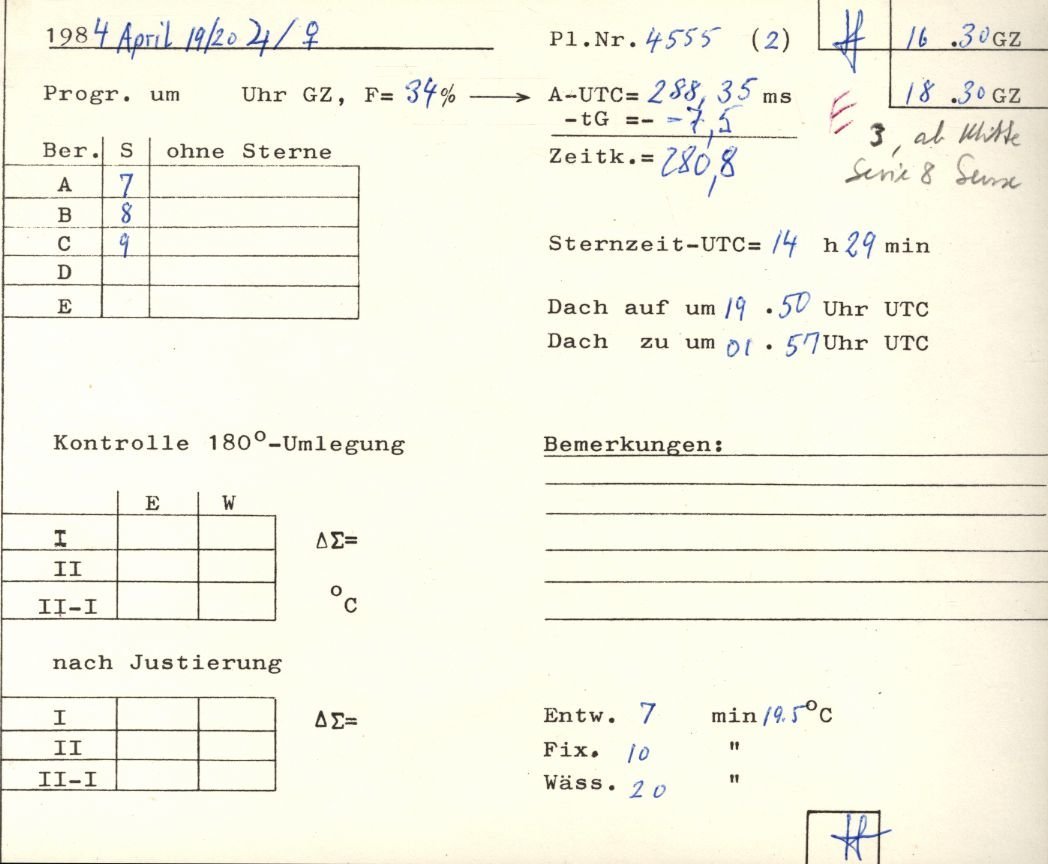 1984 April 19/20 ♃/♀
Pl.Nr. 4555 (2)
16 .30 GZ
Progr. um Uhr GZ, F= 34% → A-UTC= 288,35 ms
18 .30 GZ
-tG =- -7,5
E
Zeitk.= 280,8
3, ab Mitte
Serie 8
Ber. S ohne Sterne
A 7
B 8
C 9
D
E
Sternzeit-UTC= 14 h 29 min
Dach auf um 19 .50 Uhr UTC
Dach zu um 01 . 57 Uhr UTC
Kontrolle 180°-Umlegung
Bemerkungen:
E W
I ΔΣ=
II
II-I °C
nach Justierung
I ΔΣ=
II
II-I
Entw. 7 min 19.5°C
Fix. 10 "
Wäss. 20 "